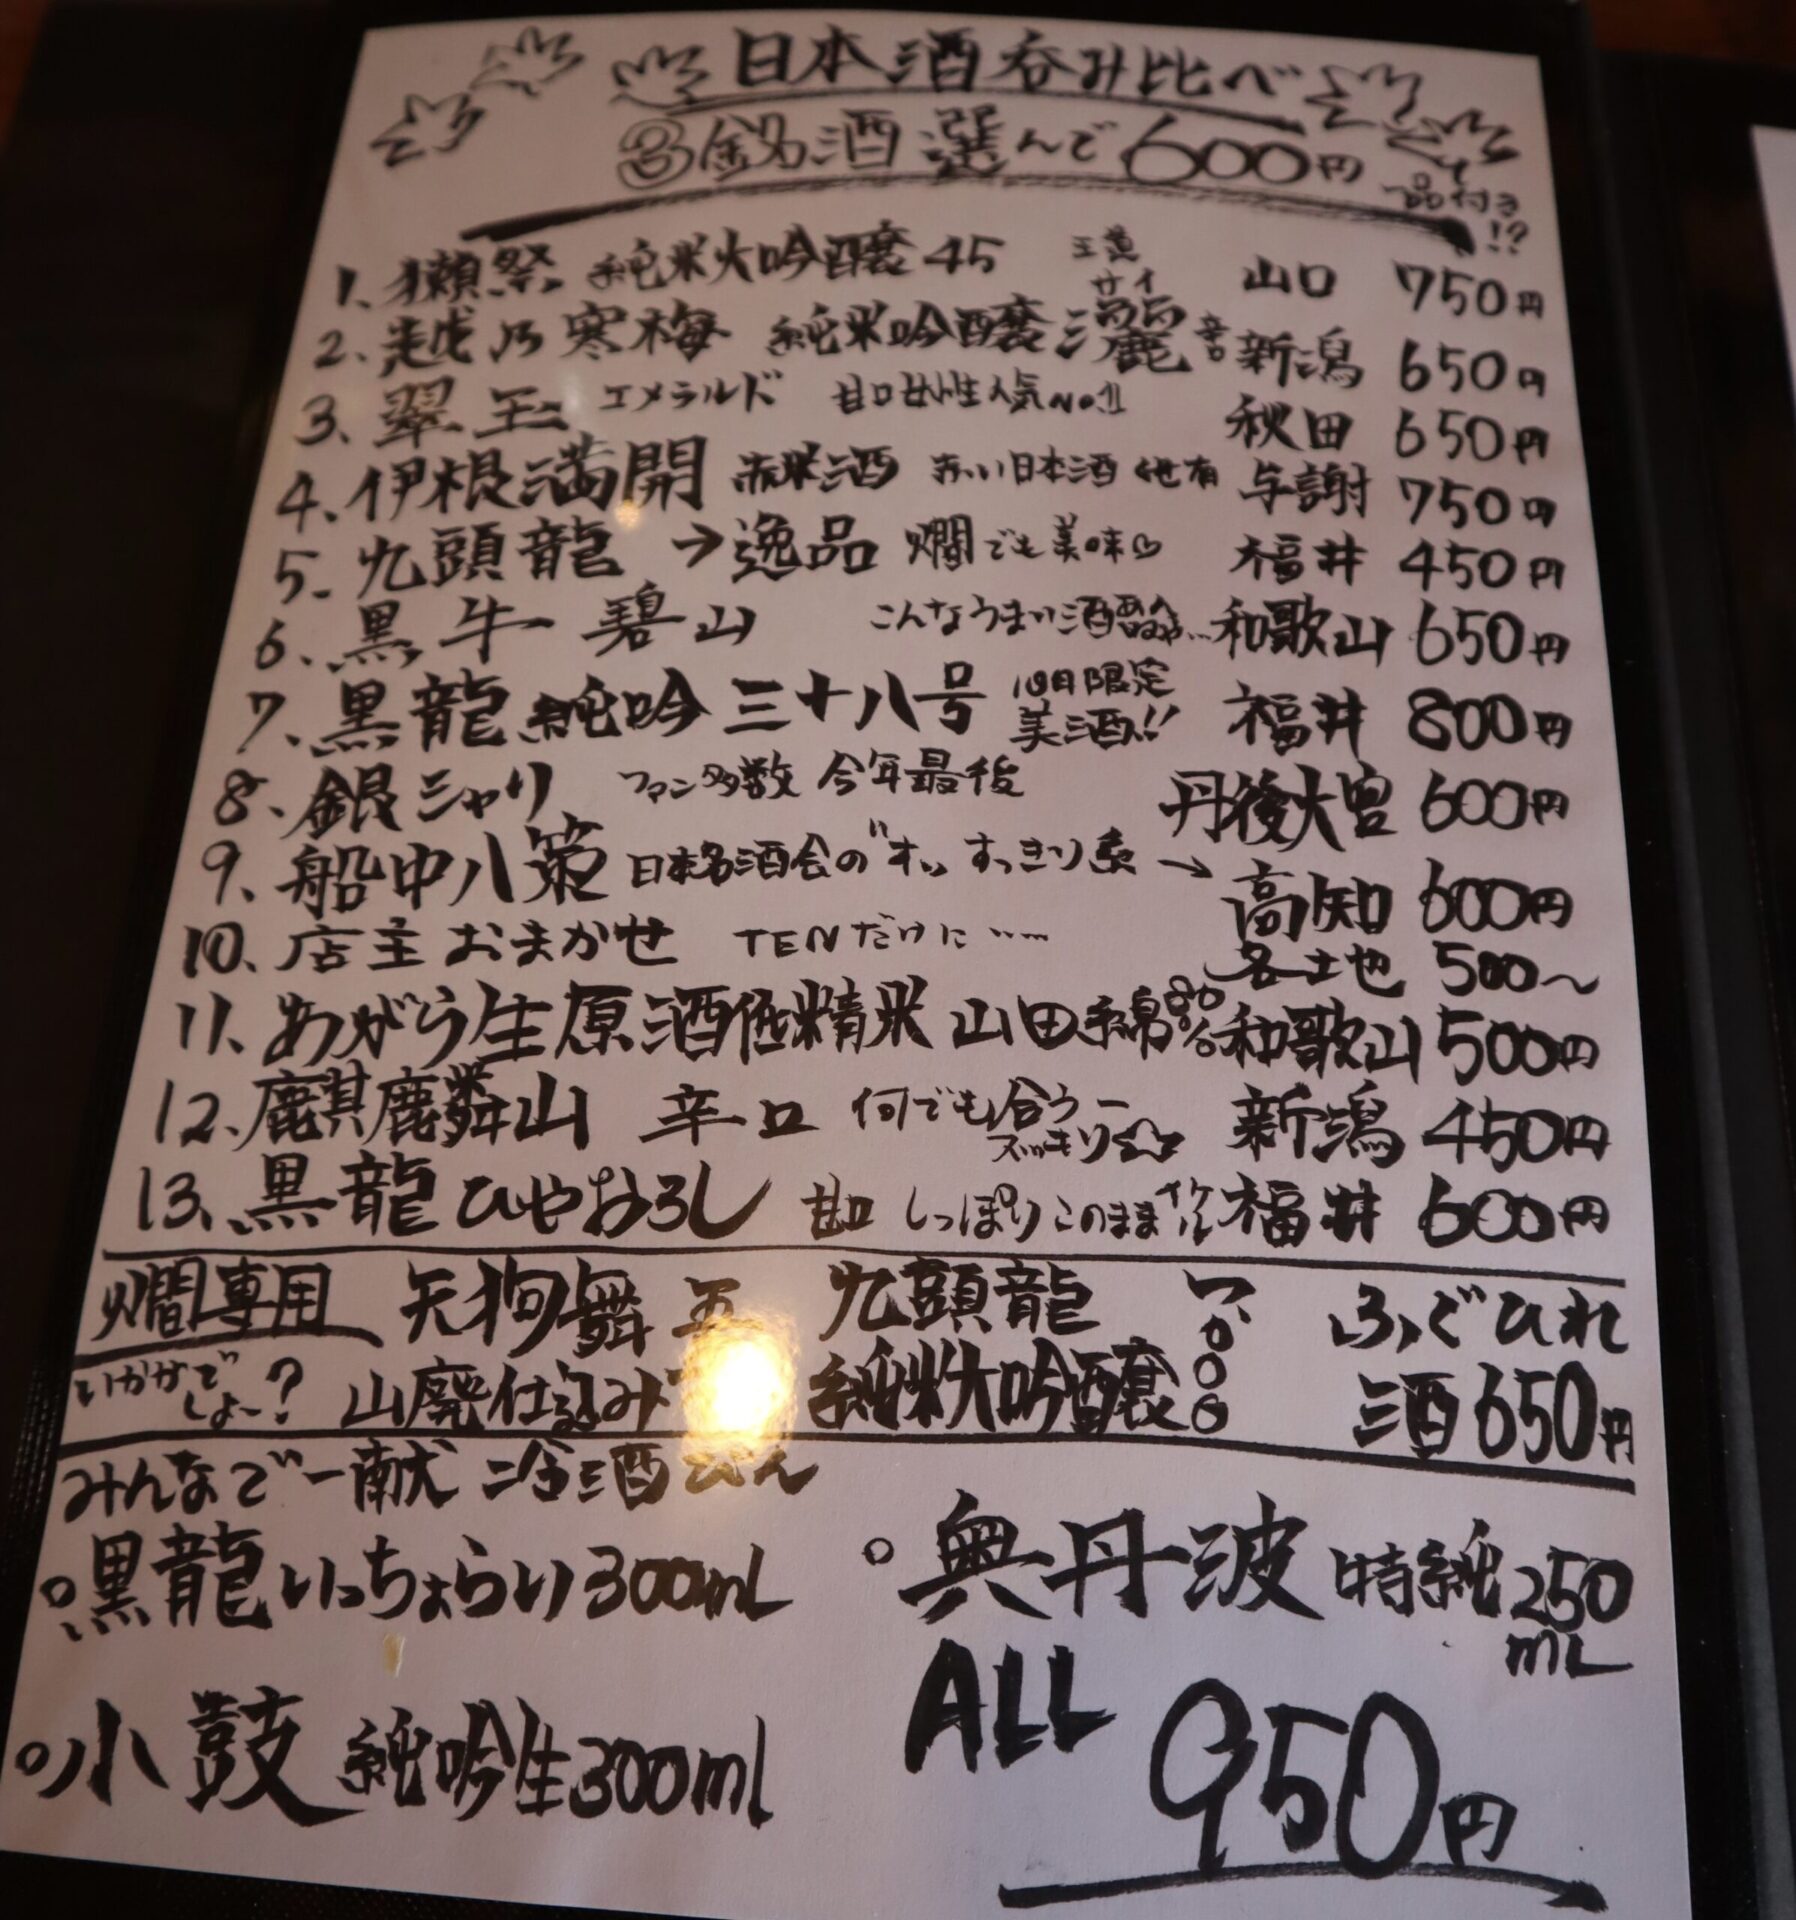 日本酒呑み比べ
③銘酒選んで600円
一品付き!?
1、獺祭 純米大吟醸45 王道 山口 750円
2、越乃寒梅 純米吟醸 灑 サイ 辛口 新潟 650円
3、翠玉 エメラルド 甘口女性人気No.1 秋田 650円
4、伊根満開 赤米酒 赤い日本酒 与謝 750円
5、九頭龍→逸品 燗でも美味♡ 福井 450円
6、黒牛 碧山 こんなうまい酒 和歌山 650円
7、黒龍 純吟 三十八号 限定 美酒!! 福井 800円
8、銀シャリ ファン多数 今年最後 丹後大宮 600円
9、船中八策 日本名酒会の すっきり系→ 高知 600円
10、店主おまかせ TENだけに…… 各土地 500〜
11、あがら生原酒低精米 山田錦 和歌山 500円
12、麒麟山 辛口 何でも合うースッキリ☆ 新潟 450円
13、黒龍ひやおろし 甘口 しっぽりこのままイケル 福井 600円
燗専用 天狗舞 五 九頭龍 ふぐひれ
いかがでしょー? 山廃仕込み 純米大吟醸 酒650円
みんなで一献 冷酒びん
○黒龍いっちょらい300mL
○奥丹波 特純250mL
○小鼓 純吟生300ml
ALL 950円